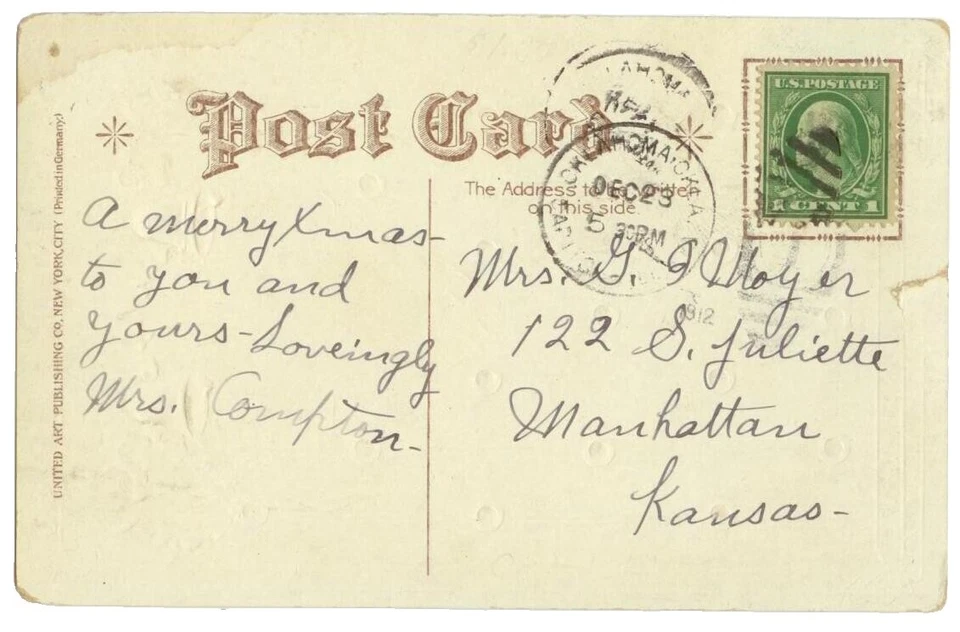 Post Card
The Address to be written
on this side.
U.S. POSTAGE
1 CENT 1
OKLAHOMA, OKLA.
DEC 23
5 30 PM
1912
A merry Xmas-
to you and
yours - Loveingly
Mrs. Compton -
Mrs. G. I Moyer
122 S. Juliette
Manhattan
Kansas -
UNITED ART PUBLISHING CO. NEW YORK CITY (Printed in Germany.)